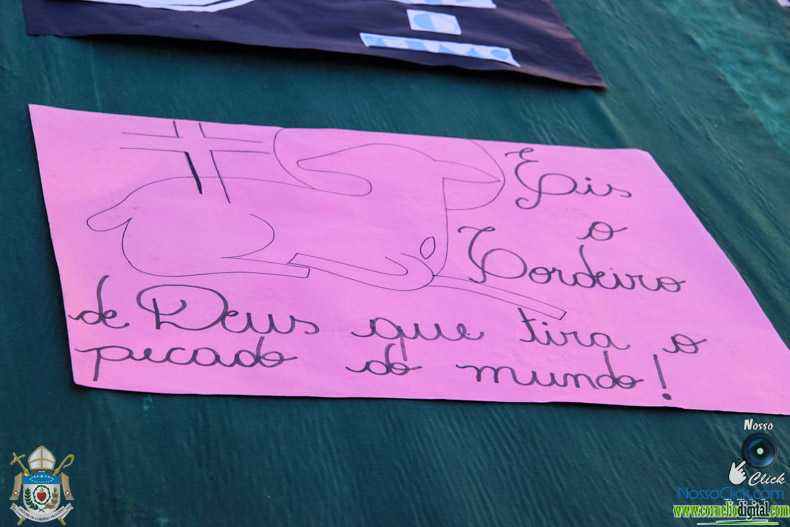 Eis
o
Cordeiro
de Deus que tira o
pecado do mundo!
Nosso
Click
NossoClick.com
www.corneliodigital.com